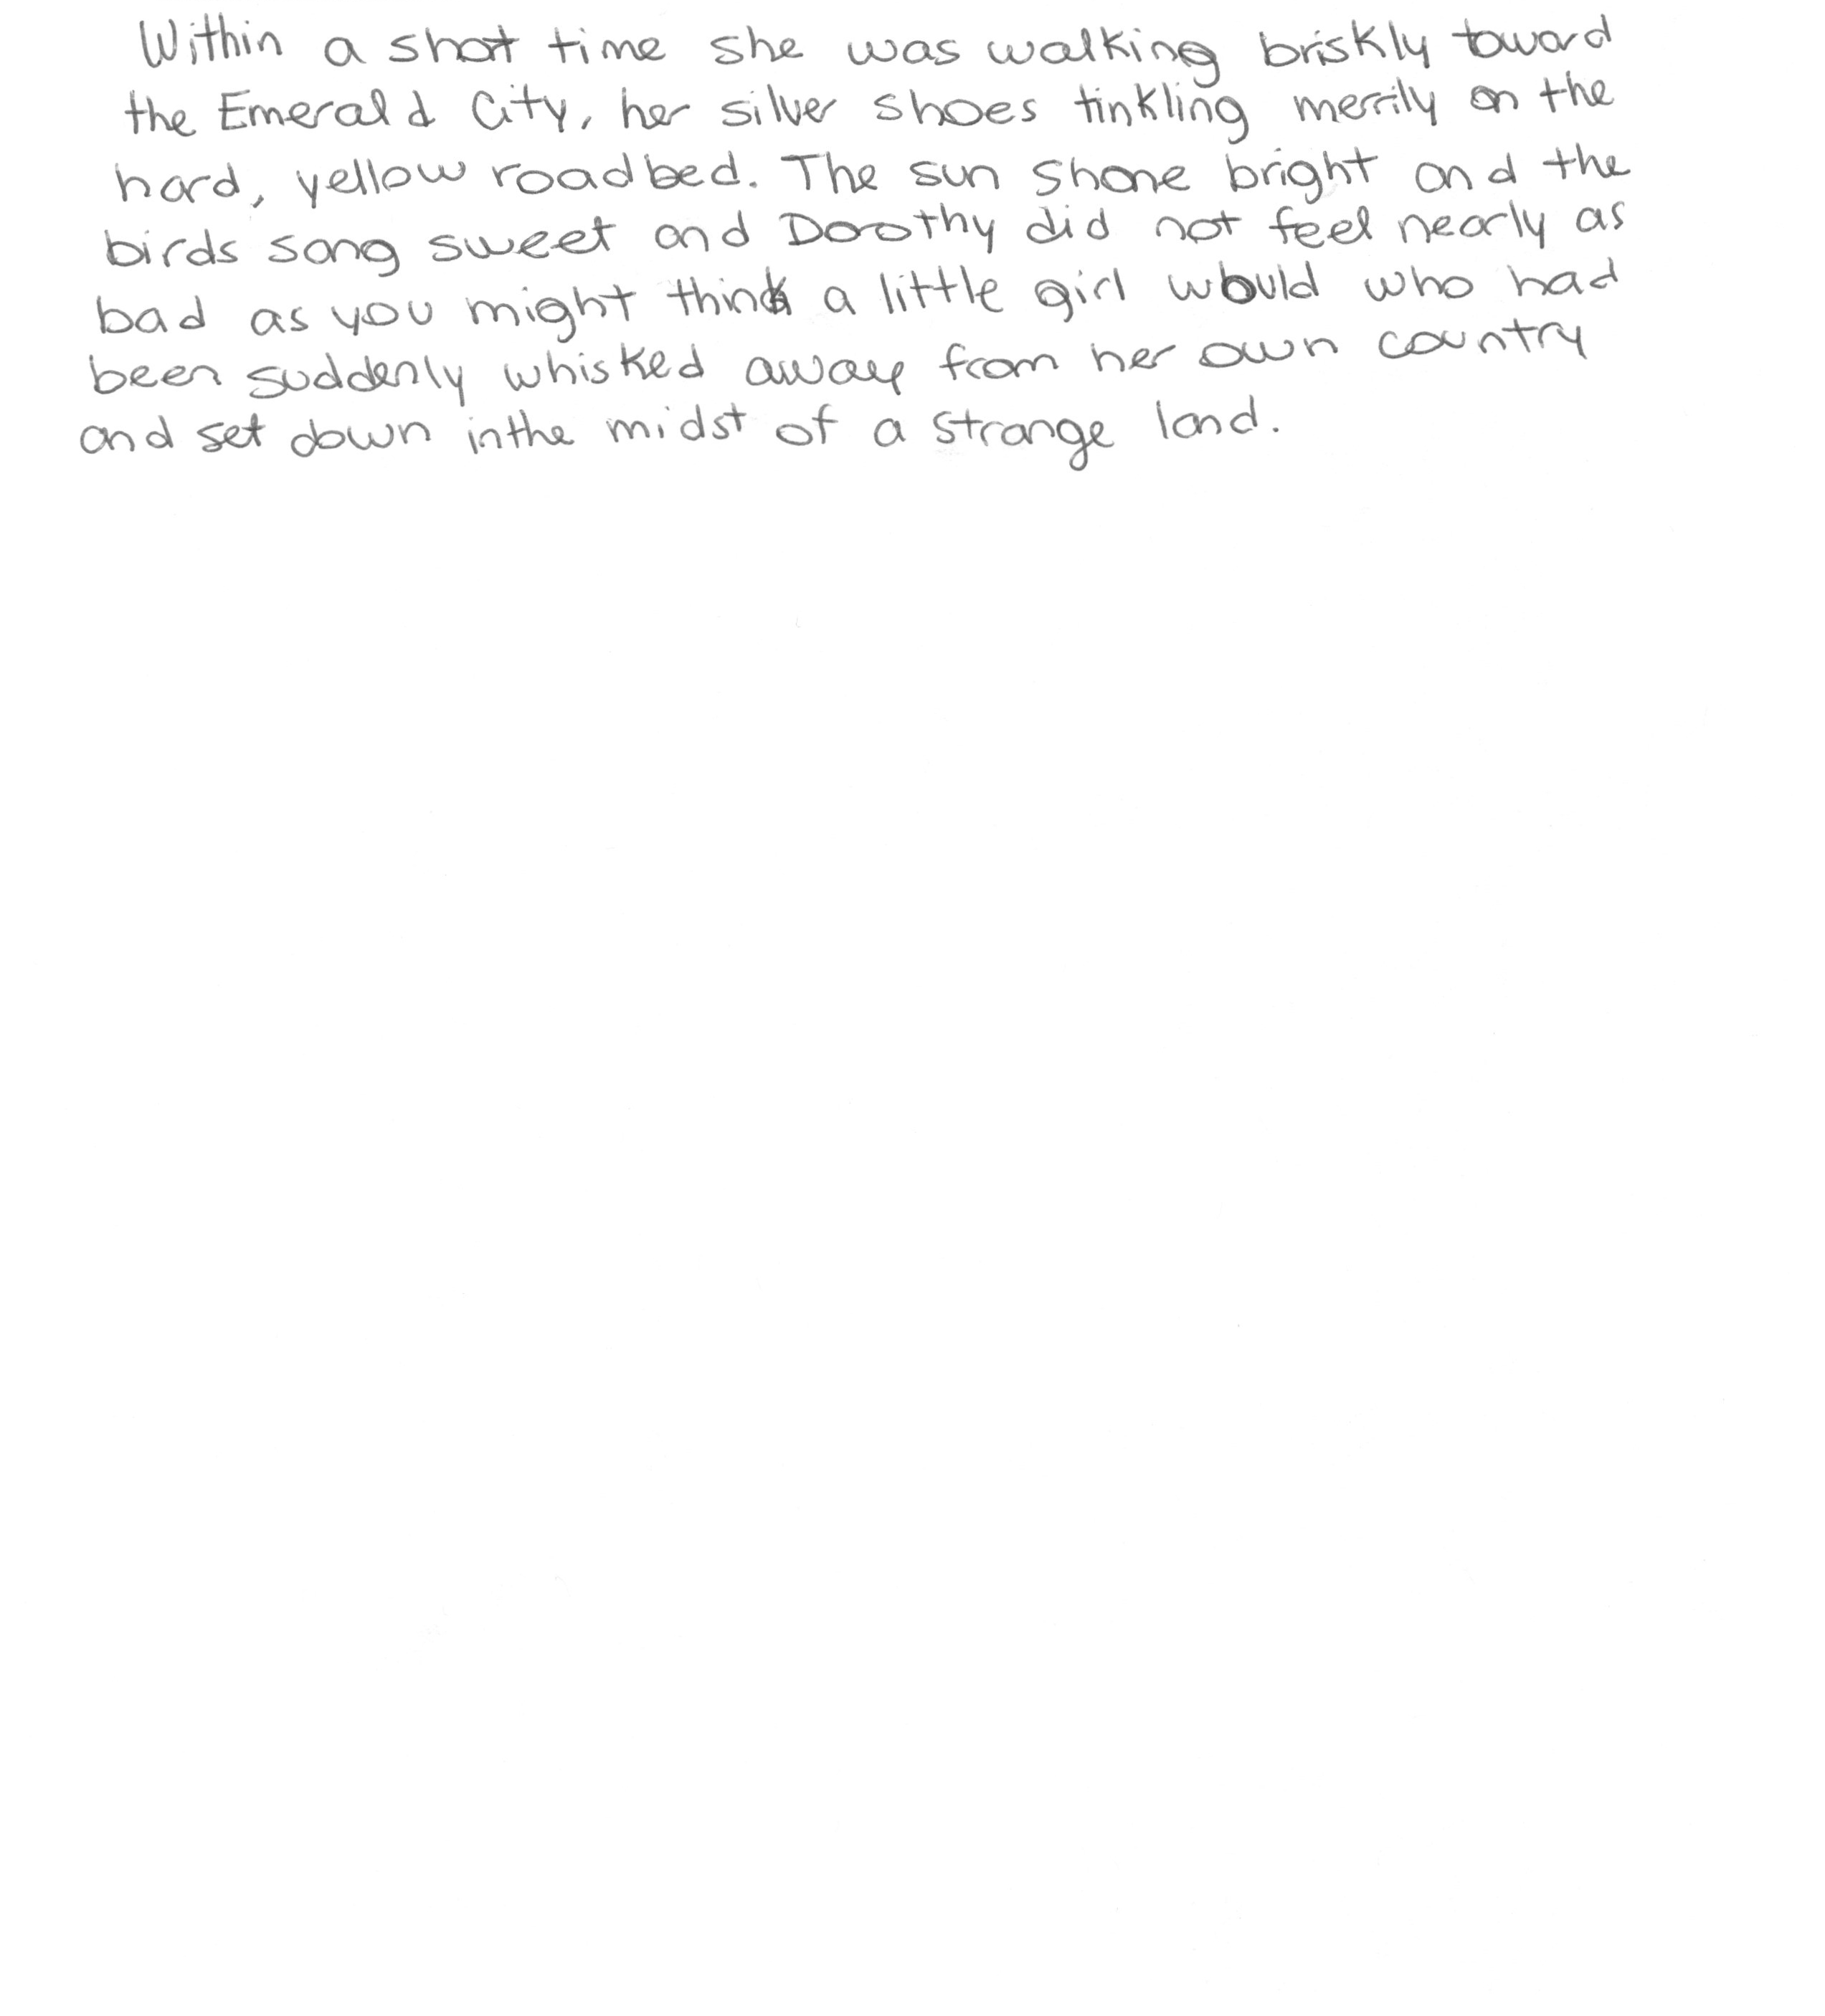 Within a short time she was walking briskly toward
the Emerald City, her silver shoes tinkling merrily on the
hard, yellow roadbed. The sun shone bright and the
birds song sweet and Dorothy did not feel nearly as
bad as you might think a little girl would who had
been suddenly whisked away from her own country
and set down in the midst of a strange land.